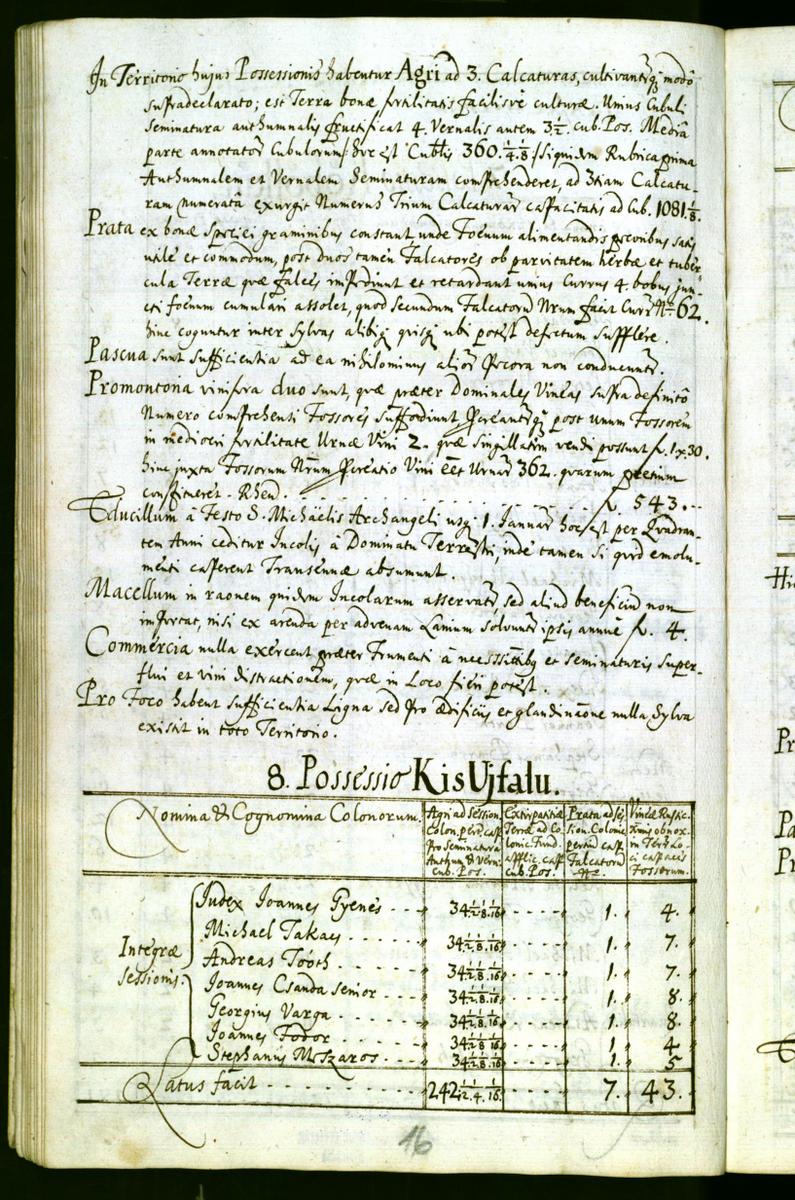 In Territorio hujus Possessionis habentur Agri ad 3. Calcaturas, cultivanturq; modô
supradeclarato; est Terra bonæ fertilitatis facilisvè culturæ. Unius Cubuli
Seminatura authumnalis fructificat 4. Vernalis autem 3 1/2. cub. Pos. Mediâ
parte annotator Cubulorum / hoc est Cublis 360. 1/4. 1/8 / siquidem Rubrica prima
Authumnalem et Vernalem Seminaturam comprehenderet, ad 3tiam Calcatu-
ram numeratâ exurgit Numerus Trium Calcaturar capacitatis ad Cub. 1081 1/8.
Prata ex bonæ speciei graminibus constant unde Foenum alimentandis pecoribus satis
utile et commodum, post duos tamen Falcatores ob parvitatem herbæ et tuber-
cula Terræ quæ falces impediunt et retardant unius Currus 4. bobus jun-
cti foenum cumulari assolet, quod secundum Falcatorum Nrum facit Curr Nro 62.
hinc coguntur inter Sylvas alibiq; quisq; ubi potest defectum supplere.
Pascua sunt sufficientia ad ea nihilominus alior Pecora non conducuntr.
Promontoria vinifera duo sunt, quæ præter Dominales Vineas supra definitô
Numero comprehensi Fossores suffodiunt Procreanturq; post unum Fossorem
in mediocri fertilitate Urnæ Vini 2. quæ singillatim vendi possunt f. 1 x 30.
hinc juxta Fossorum Nrum Procreatio Vini eet Urnar 362. quarum pretium
constitueret. Rhen. . . . . . . . . f. 543. --
Educillum à Festo S. Michaëlis Archangeli usq; 1. Januar hoc est per Quadran-
tem Anni ceditur Incolis à Dominatu Terrestri, inde tamen si quid emolu-
menti caperent Transennæ absumunt.
Macellum in raonem quidem Incolarum asservatr, sed aliud beneficiu non
importat, nisi ex arenda per advenam Lanium solvuntr ipsis annuè f. 4.
Commercia nulla exercent præter Frumenti à necessitatibq et seminaturis super-
flui et vini distractionem, quæ in Loco fieri potest.
Pro Foco habent sufficientia Ligna sed Pro Ædificiis et glandinaone nulla Sylva
existit in toto Territorio.
8. Possessio Kis Ujfalu.
Nomina & Cognomina Colonorum. Agri ad session. Colon. pert. cap. Pro Seminatura Authum & Vern. cub. Pos. Extirpatitiæ Terræ ad Colonic. Fund. applic. cap. cub. Pos. Prata ad session. Colonic pertin cap. Falcatoru Nro. Vineæ Rustic. obnox. in Terr. Loci capacis Fossorum.
Integræ sessionis:
Iudex Joannes Gyenes - - - 34 1/2. 1/8. 1/16. - - - - 1. 4.
Michael Takacs - - - - 34 1/2. 1/8. 1/16. - - - - 1. 7.
Andreas Tooth - - - - 34 1/2. 1/8. 1/16. - - - - 1. 7.
Joannes Csanda senior - - - - 34 1/2. 1/8. 1/16. - - - - 1. 8.
Georgius Varga - - - - 34 1/2. 1/8. 1/16. - - - - 1. 8.
Joannes Fodor - - - - 34 1/2. 1/8. 1/16. - - - - 1. 4.
Stephanus Meszaros - - - 34 1/2. 1/8. 1/16. - - - - 1. 5
Latus facit - - - - - - 242 1/2. 1/4. 1/16. - - - - 7. 43.
16